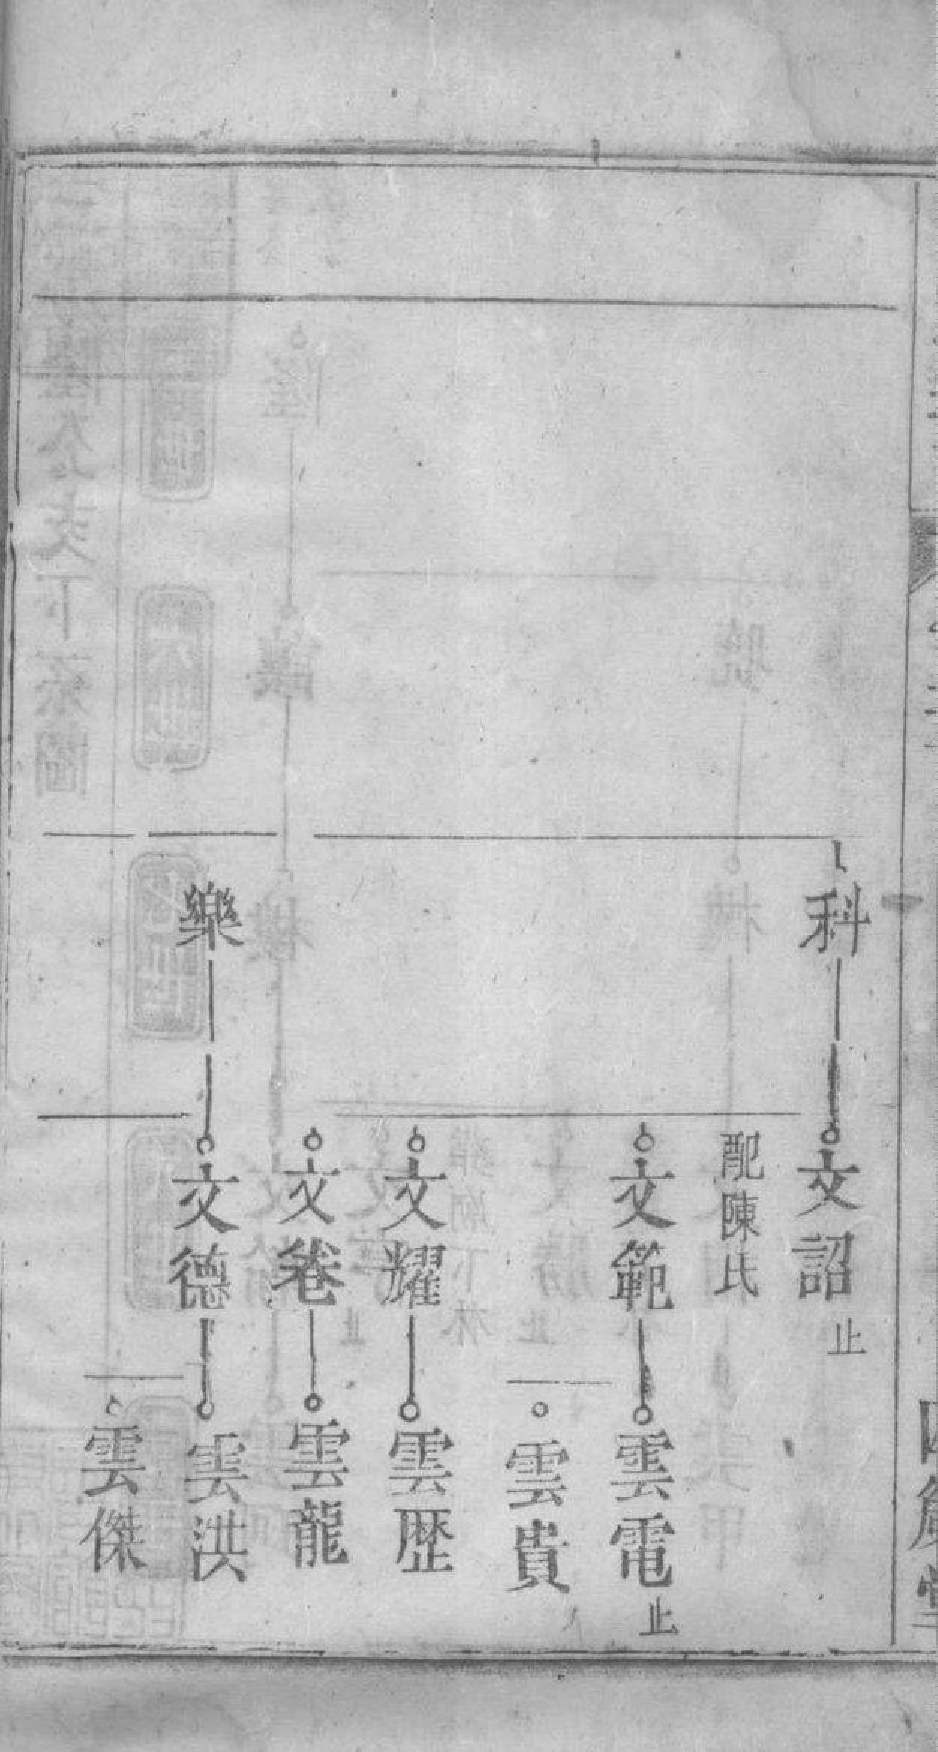 科
文詔止
配陳氏
文範
雲電止
雲貴
文耀
雲歷
文卷
雲龍
樂
文德
雲洪
雲傑